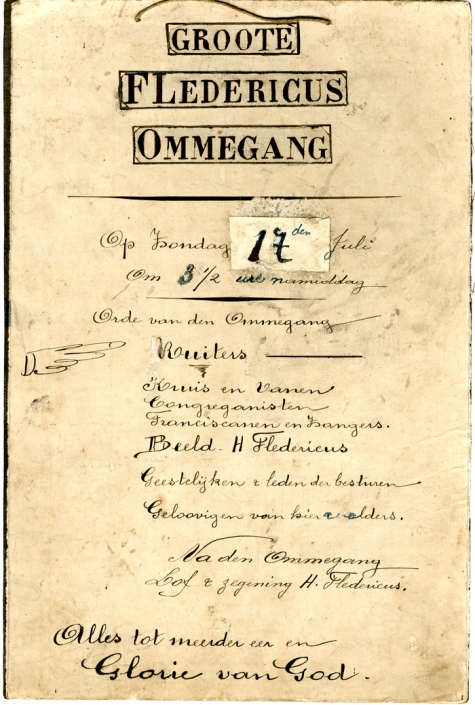 GROOTE
FLEDERICUS
OMMEGANG
Op Zondag 17 den Juli
Om 3 1/2 ure namiddag
Orde van den Ommegang
Ruiters
Kruis en Vanen
Congreganisten
Franciscanen en Zangers.
Beeld - H Fledericus
Geestelijken & leden der besturen
Geloovigen van hier & elders.
Na den Ommegang
Lof & zegening H. Fledericus.
Alles tot meerder eer en
Glorie van God.